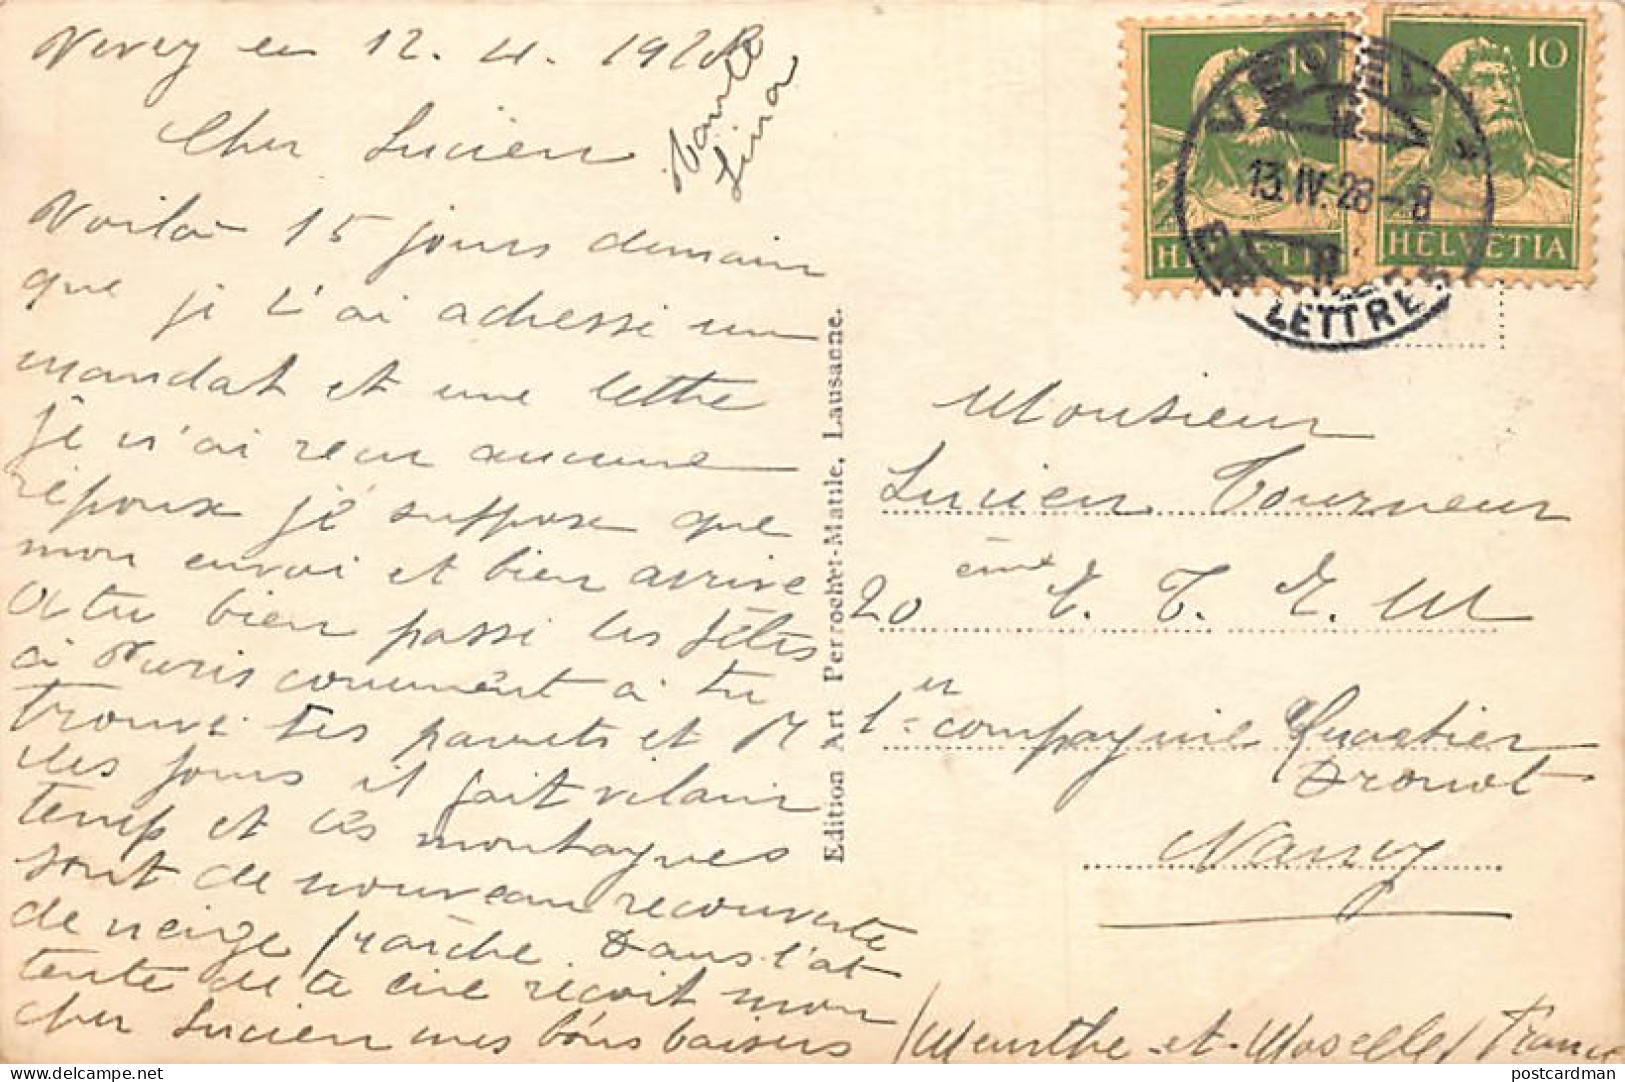 Vevey en 12. 4. 1928
Cher Lucien
Voilà 15 jours demain
que je t'ai adressé un
mandat et une lettre
je n'ai recu aucune
réponse je suppose que
mon envoi et bien arrive
a tu bien passé les fêtes
à Paris comment à tu
trouve tes parents et
les jours il fait vilain
temp et les montagnes
sont de nouveau recouverte
de neige fraîche. Dans l'at
tente de te lire reçoit mon
cher Lucien mes bons baisers
Edition Art Perrochet-Matile, Lausanne.
10
HELVETIA
10
HELVETIA
VEVEY
13.IV.28-8
LETTRES
Monsieur
Lucien Tourneur
20 ème E. T. E. M
1er compagnie Quartier
Drouot
Nancy
/Meurthe-et-Moselle/ France
delcampe.net
postcardman